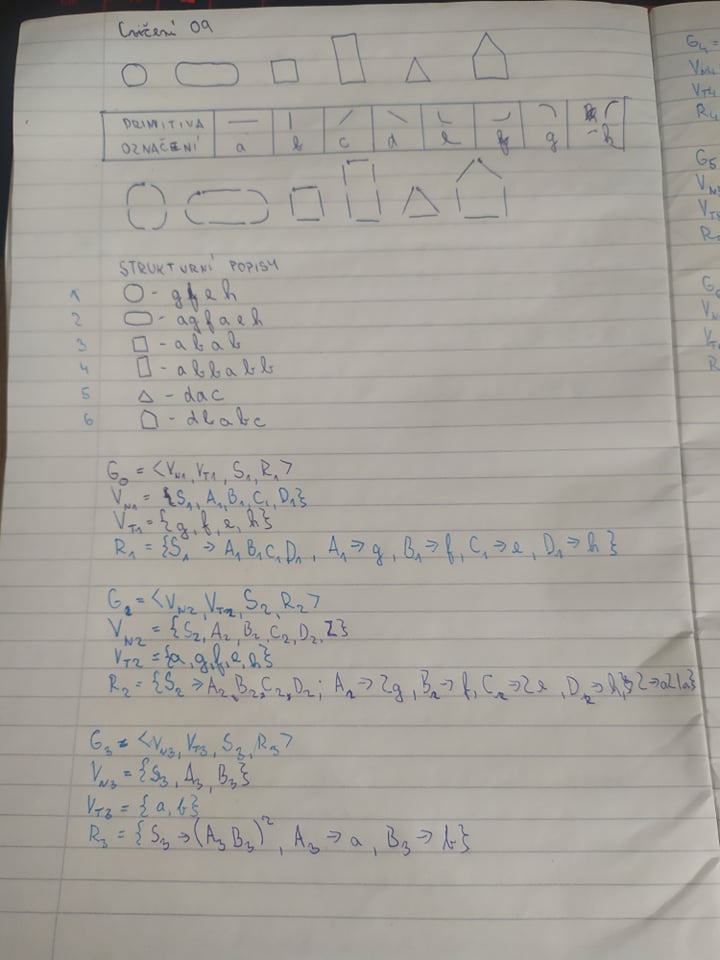 Cvičení 09
PRIMITIVA
OZNAČENÍ a b c d e f g h
STRUKTURNÍ POPISY
1 - gfeh
2 - agfaeh
3 - abab
4 - abbabb
5 - dac
6 - dbabc
G₀ = <V_N1, V_T1, S₁, R₁>
V_N1 = {S₁, A₁, B₁, C₁, D₁}
V_T1 = {g, f, e, h}
R₁ = {S₁ → A₁B₁C₁D₁, A₁ → g, B₁ → f, C₁ → e, D₁ → h}
G₂ = <V_N2, V_T2, S₂, R₂>
V_N2 = {S₂, A₂, B₂, C₂, D₂, Z}
V_T2 = {a, g, f, e, h}
R₂ = {S₂ → A₂, B₂, C₂, D₂; A₂ → Zg, B₂ → f, C₂ → Ze, D₂ → h, Z → aZ|a}
G₃ = <V_N3, V_T3, S₃, R₃>
V_N3 = {S₃, A₃, B₃}
V_T3 = {a, b}
R₃ = {S₃ → (A₃B₃)², A₃ → a, B₃ → b}
G₄ =
V_N4
V_T4
R₄
G₅
V_N
V_T
R
G
V
V_T
R